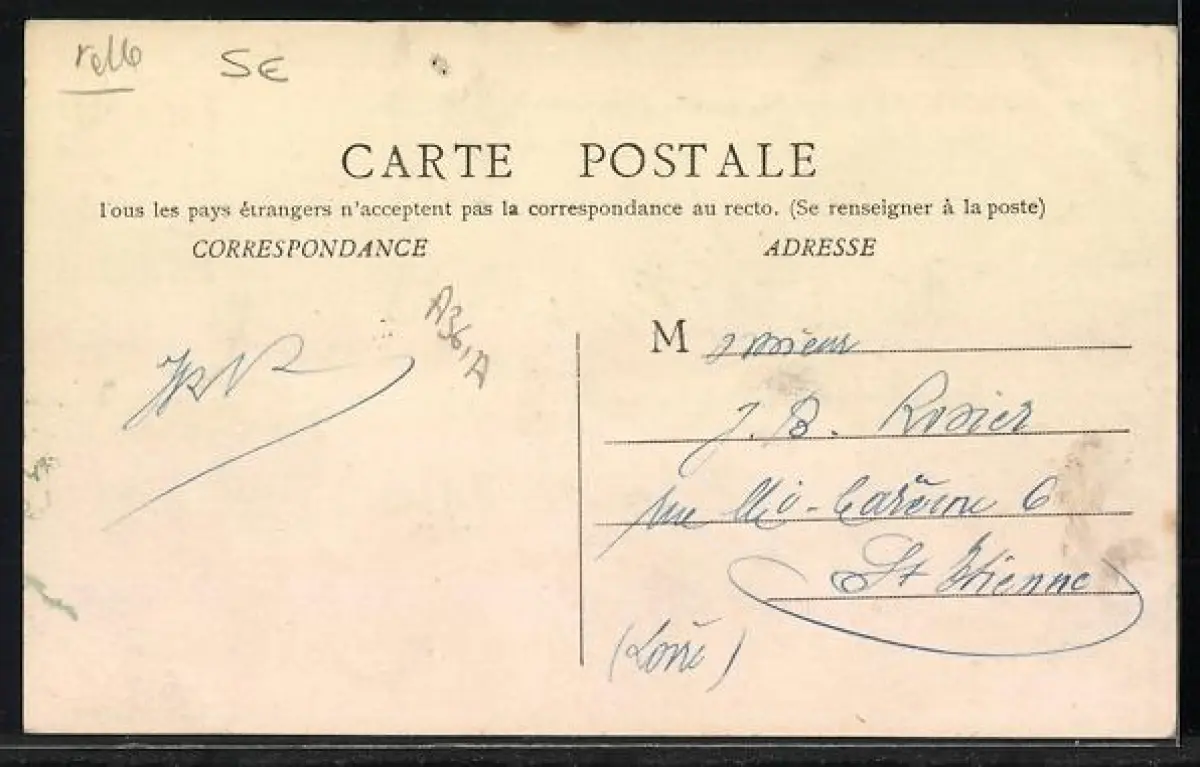 5€
CARTE POSTALE
Tous les pays étrangers n'acceptent pas la correspondance au recto. (Se renseigner à la poste)
CORRESPONDANCE
ADRESSE
A36,A
Monsieur
J. B. Rosier
rue Mi-Carême 6
St Etienne
(Loire)